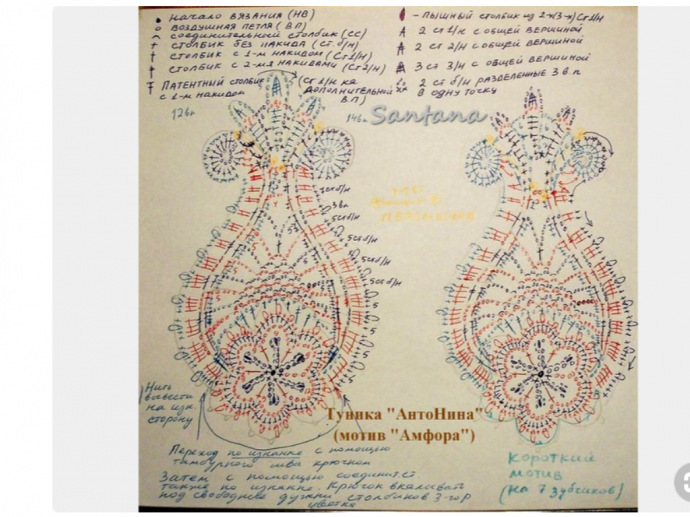 начало вязания (НВ)
воздушная петля (ВП)
соединительный столбик (СС)
столбик без накида (Ст.б/н)
столбик с 1-м накидом (Ст1/н)
столбик с 2-мя накидами (Ст2/н)
Патентный столбик
с 1-м накидом
(Ст1/н на
дополнительной
в.п.)
- пышный столбик из 2-х(3-х) Ст1/н
2 ст 1/н с общей вершиной
2 ст 2/н с общей вершиной
3 ст 3/н с общей вершиной
2 ст б/н разделенные 3 в.п
в одну точку
Santana
3 вп
5сс б/н
5сс б/н
5сс б/н
Нить
вывести
на изн.
сторону
Туника "АнтоНина"
(мотив "Амфора")
Переход по изнанке с помощью
тамбурного шва крючком
Затем с помощью соединит.ст
также по изнанке. Крючок вкалывать
под свободные дужки столбиков 3-го р
цветка
короткий
мотив
(на 7 зубчиков)